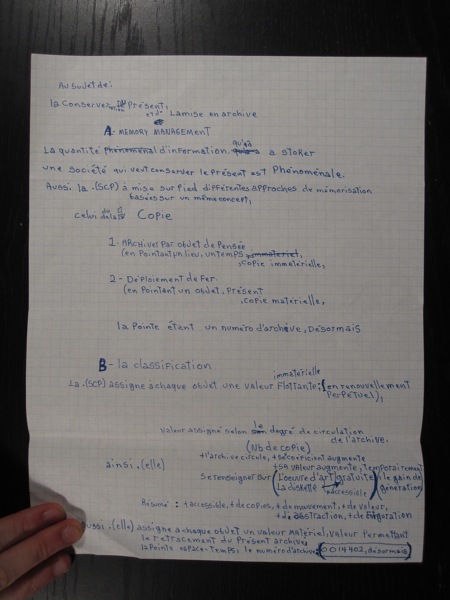 Au sujet de:
la Conservation du Présent,
et d' La mise en archive
A- MEMORY MANAGEMENT
La quantité phénoménal d'information qu'a a stoker
une société qui veut conserver le présent est Phénoménale.
Aussi la .(SCP) à mise sur pied différentes approches de mémorisation
basées sur un même concept,
celui de la Copie
1- ARchives par objet de Pensée
(en Pointant un lieu, un temps, immatériel,
,copie immatérielle,
2- Déploiement de Fer
(en Pointant un objet, Présent
,copie matérielle,
la Pointe étant un numéro d'archive, Désormais
B- la classification
immatérielle
La .(SCP) assigne à chaque objet une valeur Flottante; (en renouvellement
Perpétuel),
Valeur assigné selon le degré de circulation
de l'archive.
(Nb de copie)
+ l'archive circule, + se coéficient augmente
ainsi .(elle) + sa valeur augmente, temporairement
Se renseigner sur (L'oeuvre d'art gratuite) (le gain de
La diskette accessible génération)
Résumé : + accessible, + de copies, + de mouvement, + de valeur,
+ d'abstraction,
Aussi .(elle) assigne a chaque objet un valeur matériel, valeur Permettant
le retracement du Présent archivé
la Points espace-temps, le numéro d'archive: (0014402, désormais)